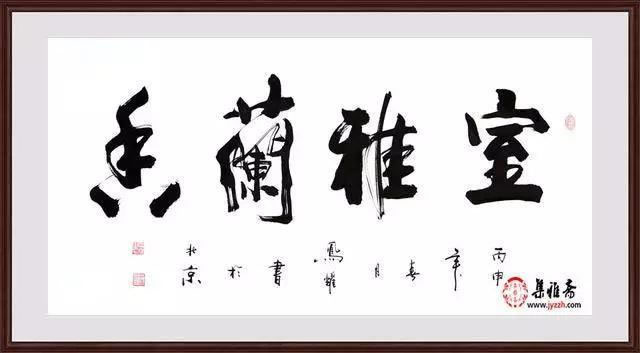 室雅蘭香
丙申年春月書於北京
集雅斋
www.jyzzh.com